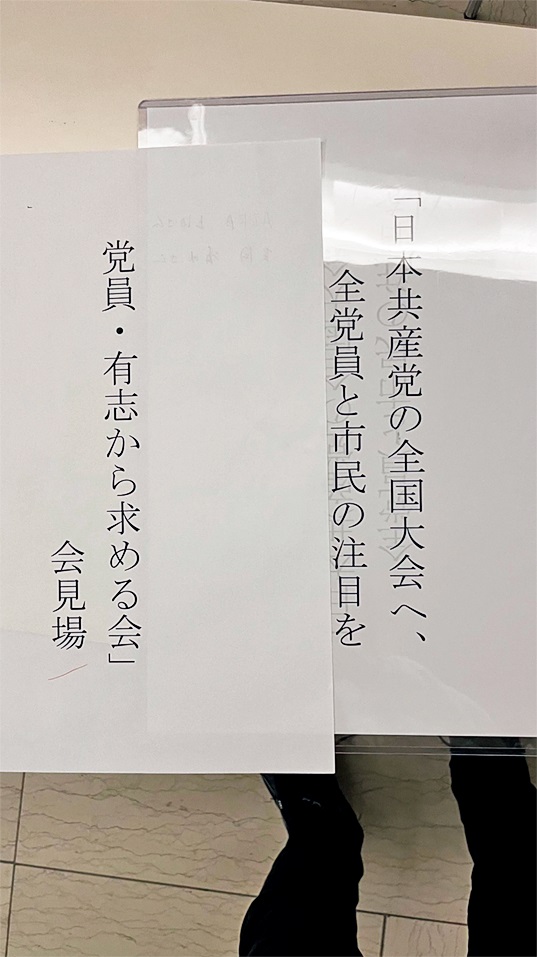 「日本共産党の全国大会へ、
全党員と市民の注目を
党員・有志から求める会」
会見場